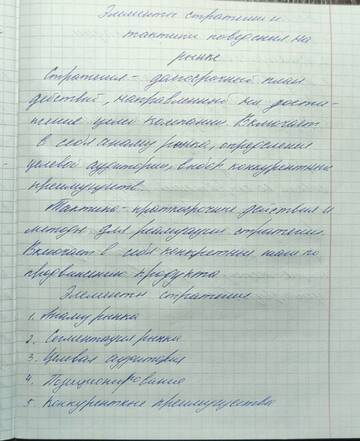 Элементы стратегии и
тактики поведения на
рынке
Стратегия - долгосрочный план
действий, направленный на дости-
жение цели компании. Включает
в себя анализ рынка, определение
целевой аудитории, выбор конкурентных
преимуществ.
Тактика - краткосрочные действия и
методы для реализации стратегии.
Включает в себя конкретные шаги по
продвижению продукта
Элементы стратегии
1. Анализ рынка
2. Сегментация рынка
3. Целевая аудитория
4. Позиционирование
5. Конкурентные преимущества